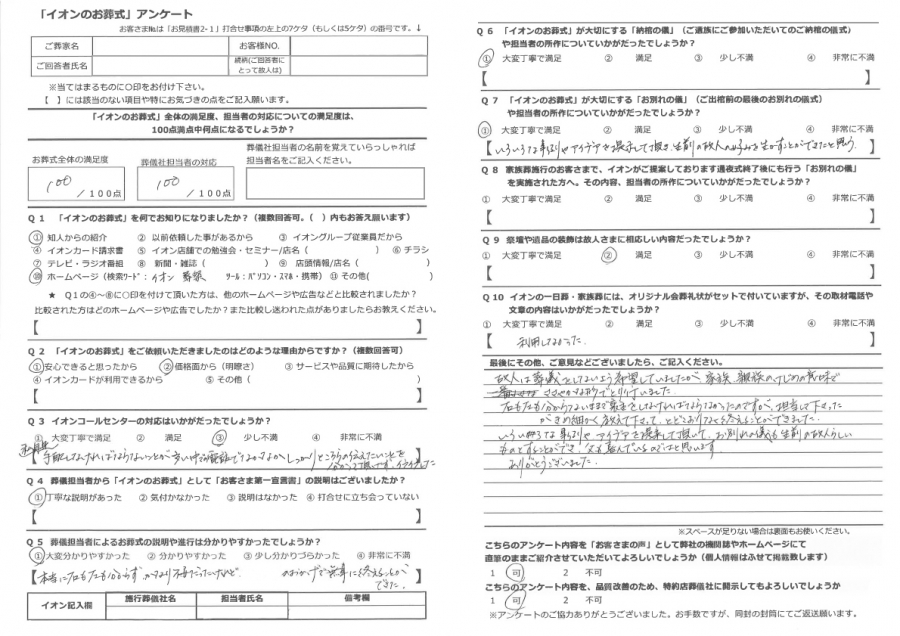 「イオンのお葬式」アンケート
お客さま№は「お見積書2-1」打合せ事項の左上の7ケタ（もしくは5ケタ）の番号です。↓
ご葬家名
お客様NO.
ご回答者氏名
続柄(ご回答者にとって故人は)
※当てはまるものに○印をお付け下さい。
【　】には該当のない項目や特にお気づきの点をご記入願います。
「イオンのお葬式」全体の満足度、担当者の対応についての満足度は、
100点満点中何点になるでしょうか？
お葬式全体の満足度
100 / 100点
葬儀社担当者の対応
100 / 100点
葬儀社担当者の名前を覚えていらっしゃれば
担当者名をご記入ください。
Ｑ１ 「イオンのお葬式」を何でお知りになりましたか？（複数回答可。（　）内もお答え願います）
① 知人からの紹介 ② 以前依頼した事があるから ③ イオングループ従業員だから
④ イオンカード請求書 ⑤ イオン店舗での勉強会・セミナー/店名（　） ⑥ チラシ
⑦ テレビ・ラジオ番組 ⑧ 新聞・雑誌（　） ⑨ 店頭情報/店名（　）
⑩ ホームページ（検索ﾜｰﾄﾞ：イオン 葬祭 ﾂｰﾙ：ﾊﾟｿｺﾝ・ｽﾏﾎ・携帯） ⑪ その他(　)
★ Ｑ１の④～⑧に○印を付けて頂いた方は、他のホームページや広告などと比較されましたか？
比較された方はどのホームページや広告でしたか？また比較し迷われた点がありましたらお教えください。
【　】
Ｑ２ 「イオンのお葬式」をご依頼いただきましたのはどのような理由からですか？（複数回答可）
① 安心できると思ったから ② 価格面から（明瞭さ） ③ サービスや品質に期待したから
④ イオンカードが利用できるから ⑤ その他（　）
【　】
Ｑ３ イオンコールセンターの対応はいかがだったでしょうか？
① 大変丁寧で満足 ② 満足 ③ 少し不満 ④ 非常に不満
Ｑ４ 葬儀担当者から「イオンのお葬式」として「お客さま第一宣言書」の説明はございましたか？
① 丁寧な説明があった ② 気付かなかった ③ 説明はなかった ④ 打合せに立ち会っていない
【　】
Ｑ５ 葬儀担当者によるお葬式の説明や進行は分かりやすかったでしょうか？
① 大変分かりやすかった ② 分かりやすかった ③ 少し分かりづらかった ④ 非常に不満
【本当に右も左も分からず 不安だったけれど のおかげで無事に終えることができた。】
イオン記入欄
施行葬儀社名
担当者氏名
備考欄
Ｑ６ 「イオンのお葬式」が大切にする「納棺の儀」（ご遺族にご参加いただいてのご納棺の儀式）
や担当者の所作についていかがだったでしょうか？
① 大変丁寧で満足 ② 満足 ③ 少し不満 ④ 非常に不満
【　】
Ｑ７ 「イオンのお葬式」が大切にする「お別れの儀」（ご出棺前の最後のお別れの儀式）
や担当者の所作についていかがだったでしょうか？
① 大変丁寧で満足 ② 満足 ③ 少し不満 ④ 非常に不満
【いろいろな事例やアイデアを提示して頂き、生前の故人の好みを生かすことができたと思う。】
Ｑ８ 家族葬施行のお客さまで、イオンがご提案しております通夜式終了後にも行う「お別れの儀」
を実施された方へ。その内容、担当者の所作についていかがだったでしょうか？
① 大変丁寧で満足 ② 満足 ③ 少し不満 ④ 非常に不満
【　】
Ｑ９ 祭壇や遺品の装飾は故人さまに相応しい内容だったでしょうか？
① 大変丁寧で満足 ② 満足 ③ 少し不満 ④ 非常に不満
【　】
Ｑ10 イオンの一日葬・家族葬には、オリジナル会葬礼状がセットで付いていますが、その取材電話や
文章の内容はいかがだったでしょうか？
① 大変丁寧で満足 ② 満足 ③ 少し不満 ④ 非常に不満
【利用しなかった。】
最後にその他、ご意見などございましたら、ご記入ください。
故人は葬儀をしないよう希望していましたが、家族、親族のけじめの意味で
行いました。
右も左も分からないままで喪主をしなければならなかったのですが、担当して下さった
がきめ細かく教えて下さって、とどこおりなく終えることができました。
いろいろな事例やアイデアを提示して頂いて、お別れの儀も生前の故人らしい
ものにすることができ、父も喜んでいるのではと思います。
ありがとうございました。
※スペースが足りない場合は裏面もお使いください。
こちらのアンケート内容を「お客さまの声」として弊社の機関誌やホームページにて
直筆のままご紹介させていただいてよろしいでしょうか（個人情報はふせて掲載致します）
1 可 2 不可
こちらのアンケート内容を、品質改善のため、特約店葬儀社に開示してもよろしいでしょうか
1 可 2 不可
※アンケートのご協力ありがとうございました。お手数ですが、同封の封筒にてご返送願います。